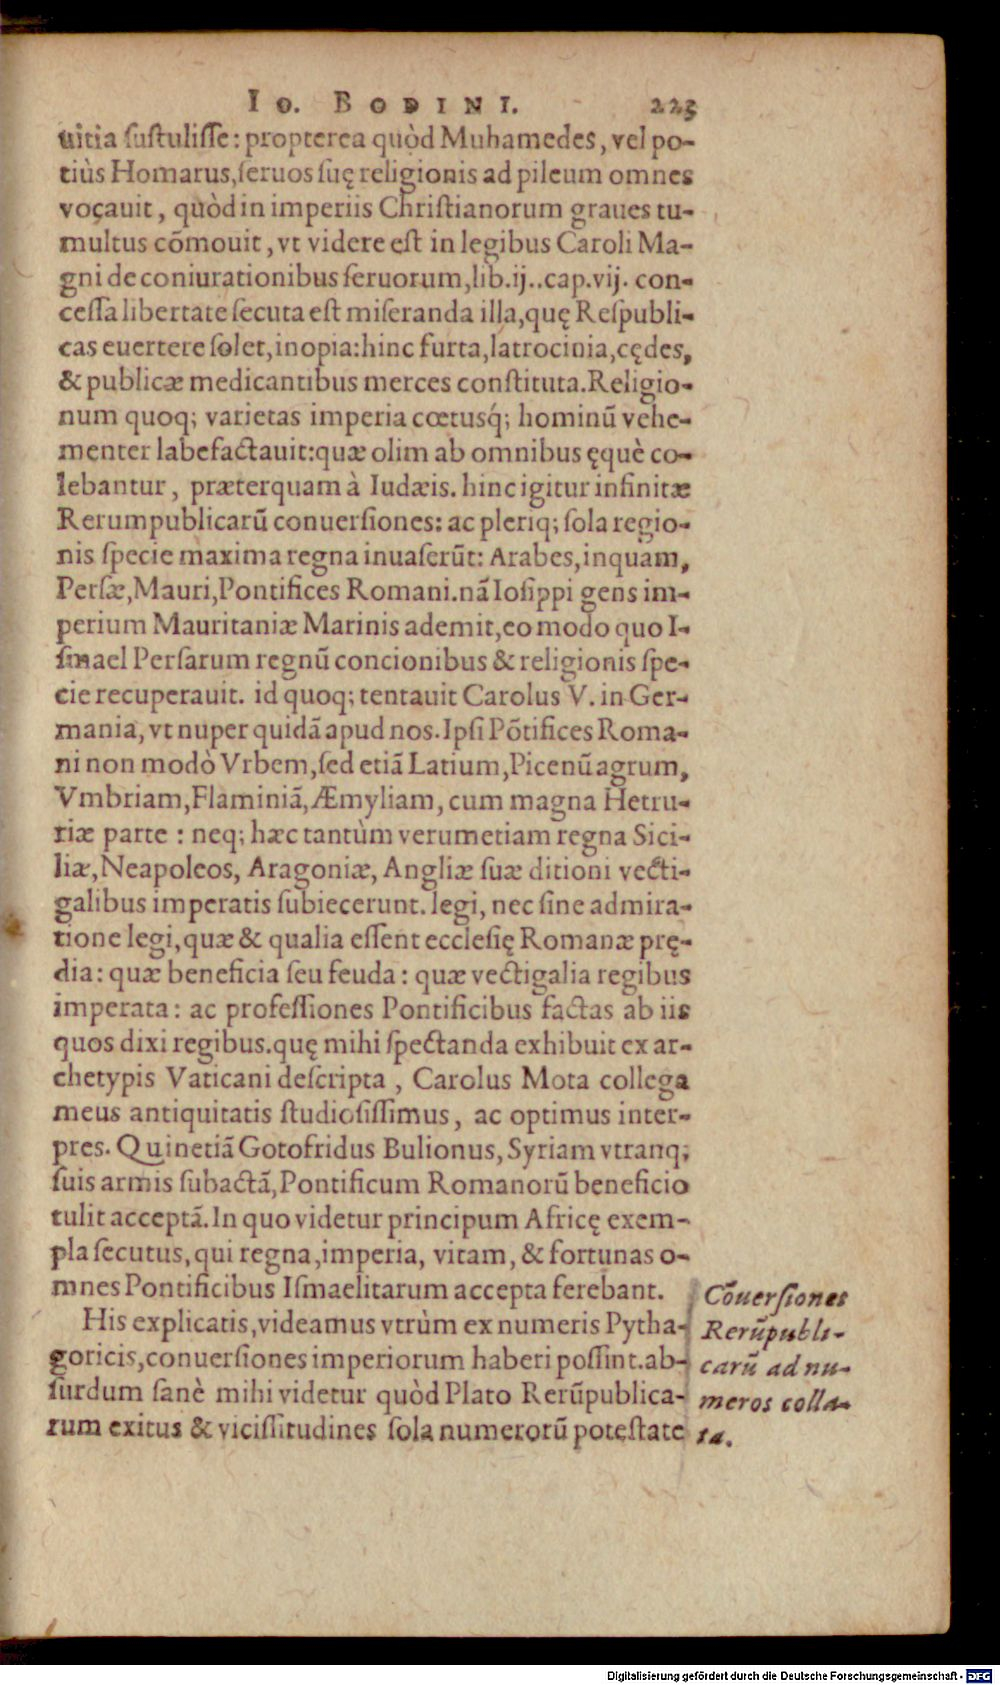 IO. BODINI. 225
uitia ſuſtuliſſe: propterea quòd Muhamedes, vel po-
tiùs Homarus, ſeruos ſuę religionis ad pileum omnes
vocauit, quòd in imperiis Chriſtianorum graues tu-
multus cõmouit, vt videre eſt in legibus Caroli Ma-
gni de coniurationibus ſeruorum, lib.ij..cap.vij. con-
ceſſa libertate ſecuta eſt miſeranda illa, quę Reſpubli-
cas euertere ſolet, inopia: hinc furta, latrocinia, cędes,
& publicæ medicantibus merces conſtituta. Religio-
num quoq; varietas imperia cœtusq́; hominũ vehe-
menter labefactauit: quæ olim ab omnibus ęquè co-
lebantur, præterquam à Iudæis. hinc igitur infinitæ
Rerumpublicarũ conuerſiones: ac pleriq; ſola regio-
nis ſpecie maxima regna inuaſerũt: Arabes, inquam,
Perſæ, Mauri, Pontifices Romani. nã Ioſippi gens im-
perium Mauritaniæ Marinis ademit, eo modo quo I-
ſmael Perſarum regnũ concionibus & religionis ſpe-
cie recuperauit. id quoq; tentauit Carolus V. in Ger-
mania, vt nuper quidã apud nos. Ipſi Põtifices Roma-
ni non modò Vrbem, ſed etiã Latium, Picenũ agrum,
Vmbriam, Flaminiã, Æmyliam, cum magna Hetru-
riæ parte : neq; hæc tantùm verumetiam regna Sici-
liæ, Neapoleos, Aragoniæ, Angliæ ſuæ ditioni vecti-
galibus imperatis ſubiecerunt. legi, nec ſine admira-
tione legi, quæ & qualia eſſent eccleſię Romanæ prę-
dia: quæ beneficia ſeu feuda: quæ vectigalia regibus
imperata: ac profeſſiones Pontificibus factas ab iis
quos dixi regibus. quę mihi ſpectanda exhibuit ex ar-
chetypis Vaticani deſcripta, Carolus Mota collega
meus antiquitatis ſtudioſiſſimus, ac optimus inter-
pres. Quinetiã Gotofridus Bulionus, Syriam vtranq;
ſuis armis ſubactã, Pontificum Romanorũ beneficio
tulit acceptã. In quo videtur principum Africę exem-
pla ſecutus, qui regna, imperia, vitam, & fortunas o-
mnes Pontificibus Iſmaelitarum accepta ferebant.
His explicatis, videamus vtrùm ex numeris Pytha-
goricis, conuerſiones imperiorum haberi poſſint. ab-
ſurdum ſanè mihi videtur quòd Plato Rerũpublica-
rum exitus & viciſſitudines ſola numerorũ poteſtate
Cõuerſiones
Rerũpubli-
carũ ad nu-
meros colla-
ta.
Digitalisierung gefördert durch die Deutsche Forschungsgemeinschaft - DFG